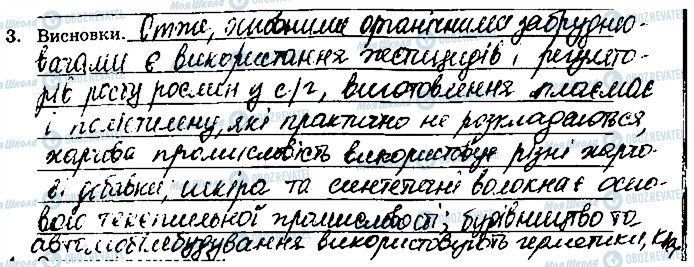 3. Висновки. Отже, основними органічними забрудню-
вачами є використання пестицидів і регулято-
рів росту рослин у с/г, виготовлення пластмас
і поліетилену, які практично не розкладаються
харчова промисловість використовує різні харчо-
ві добавки, шкіра та синтетичні волокна є осно-
вою текстильної промисловості; будівництво та
автомобілебудування використовують герметики,